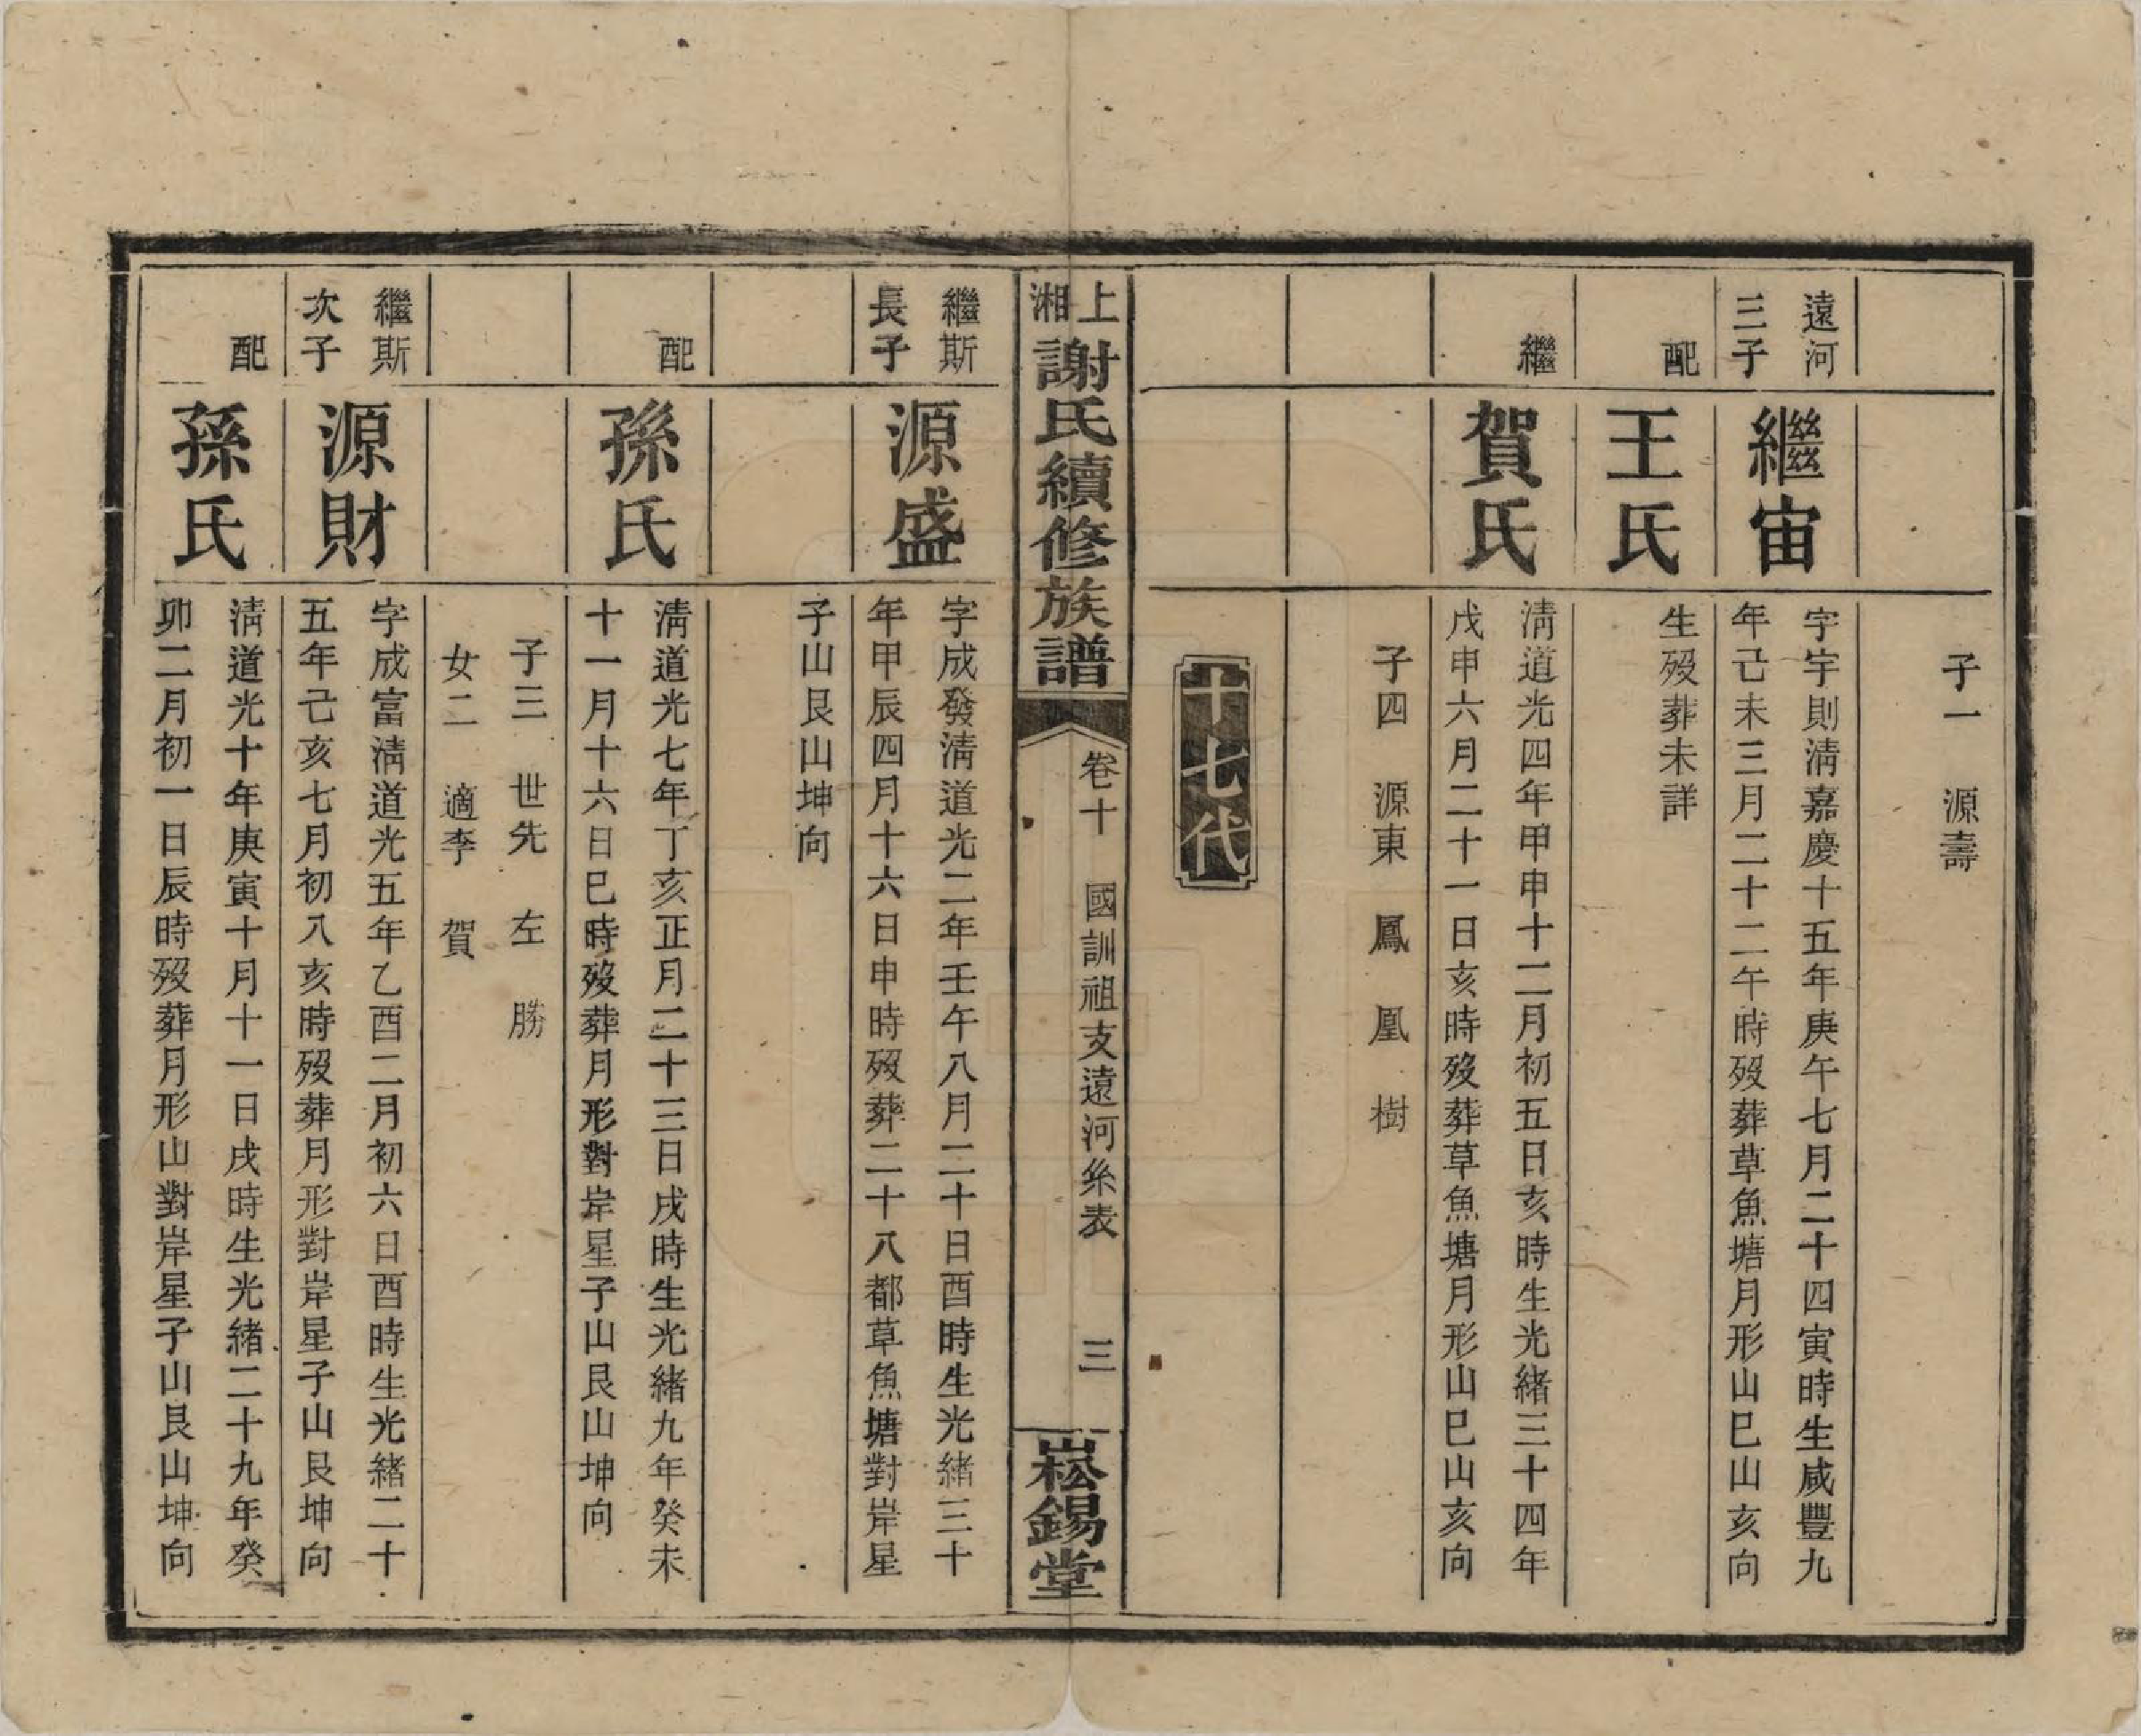 子一 源壽
遠河
三子
繼宙
字宇則淸嘉慶十五年庚午七月二十四寅時生咸豐九
年己未三月二十二午時歿葬草魚塘月形山巳山亥向
配
王氏
生歿葬未詳
繼
賀氏
淸道光四年甲申十二月初五日亥時生光緒三十四年
戊申六月二十一日亥時歿葬草魚塘月形山巳山亥向
子四 源東 鳳 凰 樹
十七代
上湘謝氏續修族譜
卷十 國訓祖支遠河系表 三
崧錫堂
繼斯
長子
源盛
字成發淸道光二年壬午八月二十日酉時生光緒三十
年甲辰四月十六日申時歿葬二十八都草魚塘對岸星
子山艮山坤向
配
孫氏
淸道光七年丁亥正月二十三日戌時生光緒九年癸未
十一月十六日巳時歿葬月形對岸星子山艮山坤向
子三 世先 左 勝
女二 適李 賀
繼斯
次子
源財
字成富淸道光五年乙酉二月初六日酉時生光緒二十
五年己亥七月初八亥時歿葬月形對岸星子山艮坤向
配
孫氏
淸道光十年庚寅十月十一日戌時生光緒二十九年癸
卯二月初一日辰時歿葬月形山對岸星子山艮山坤向